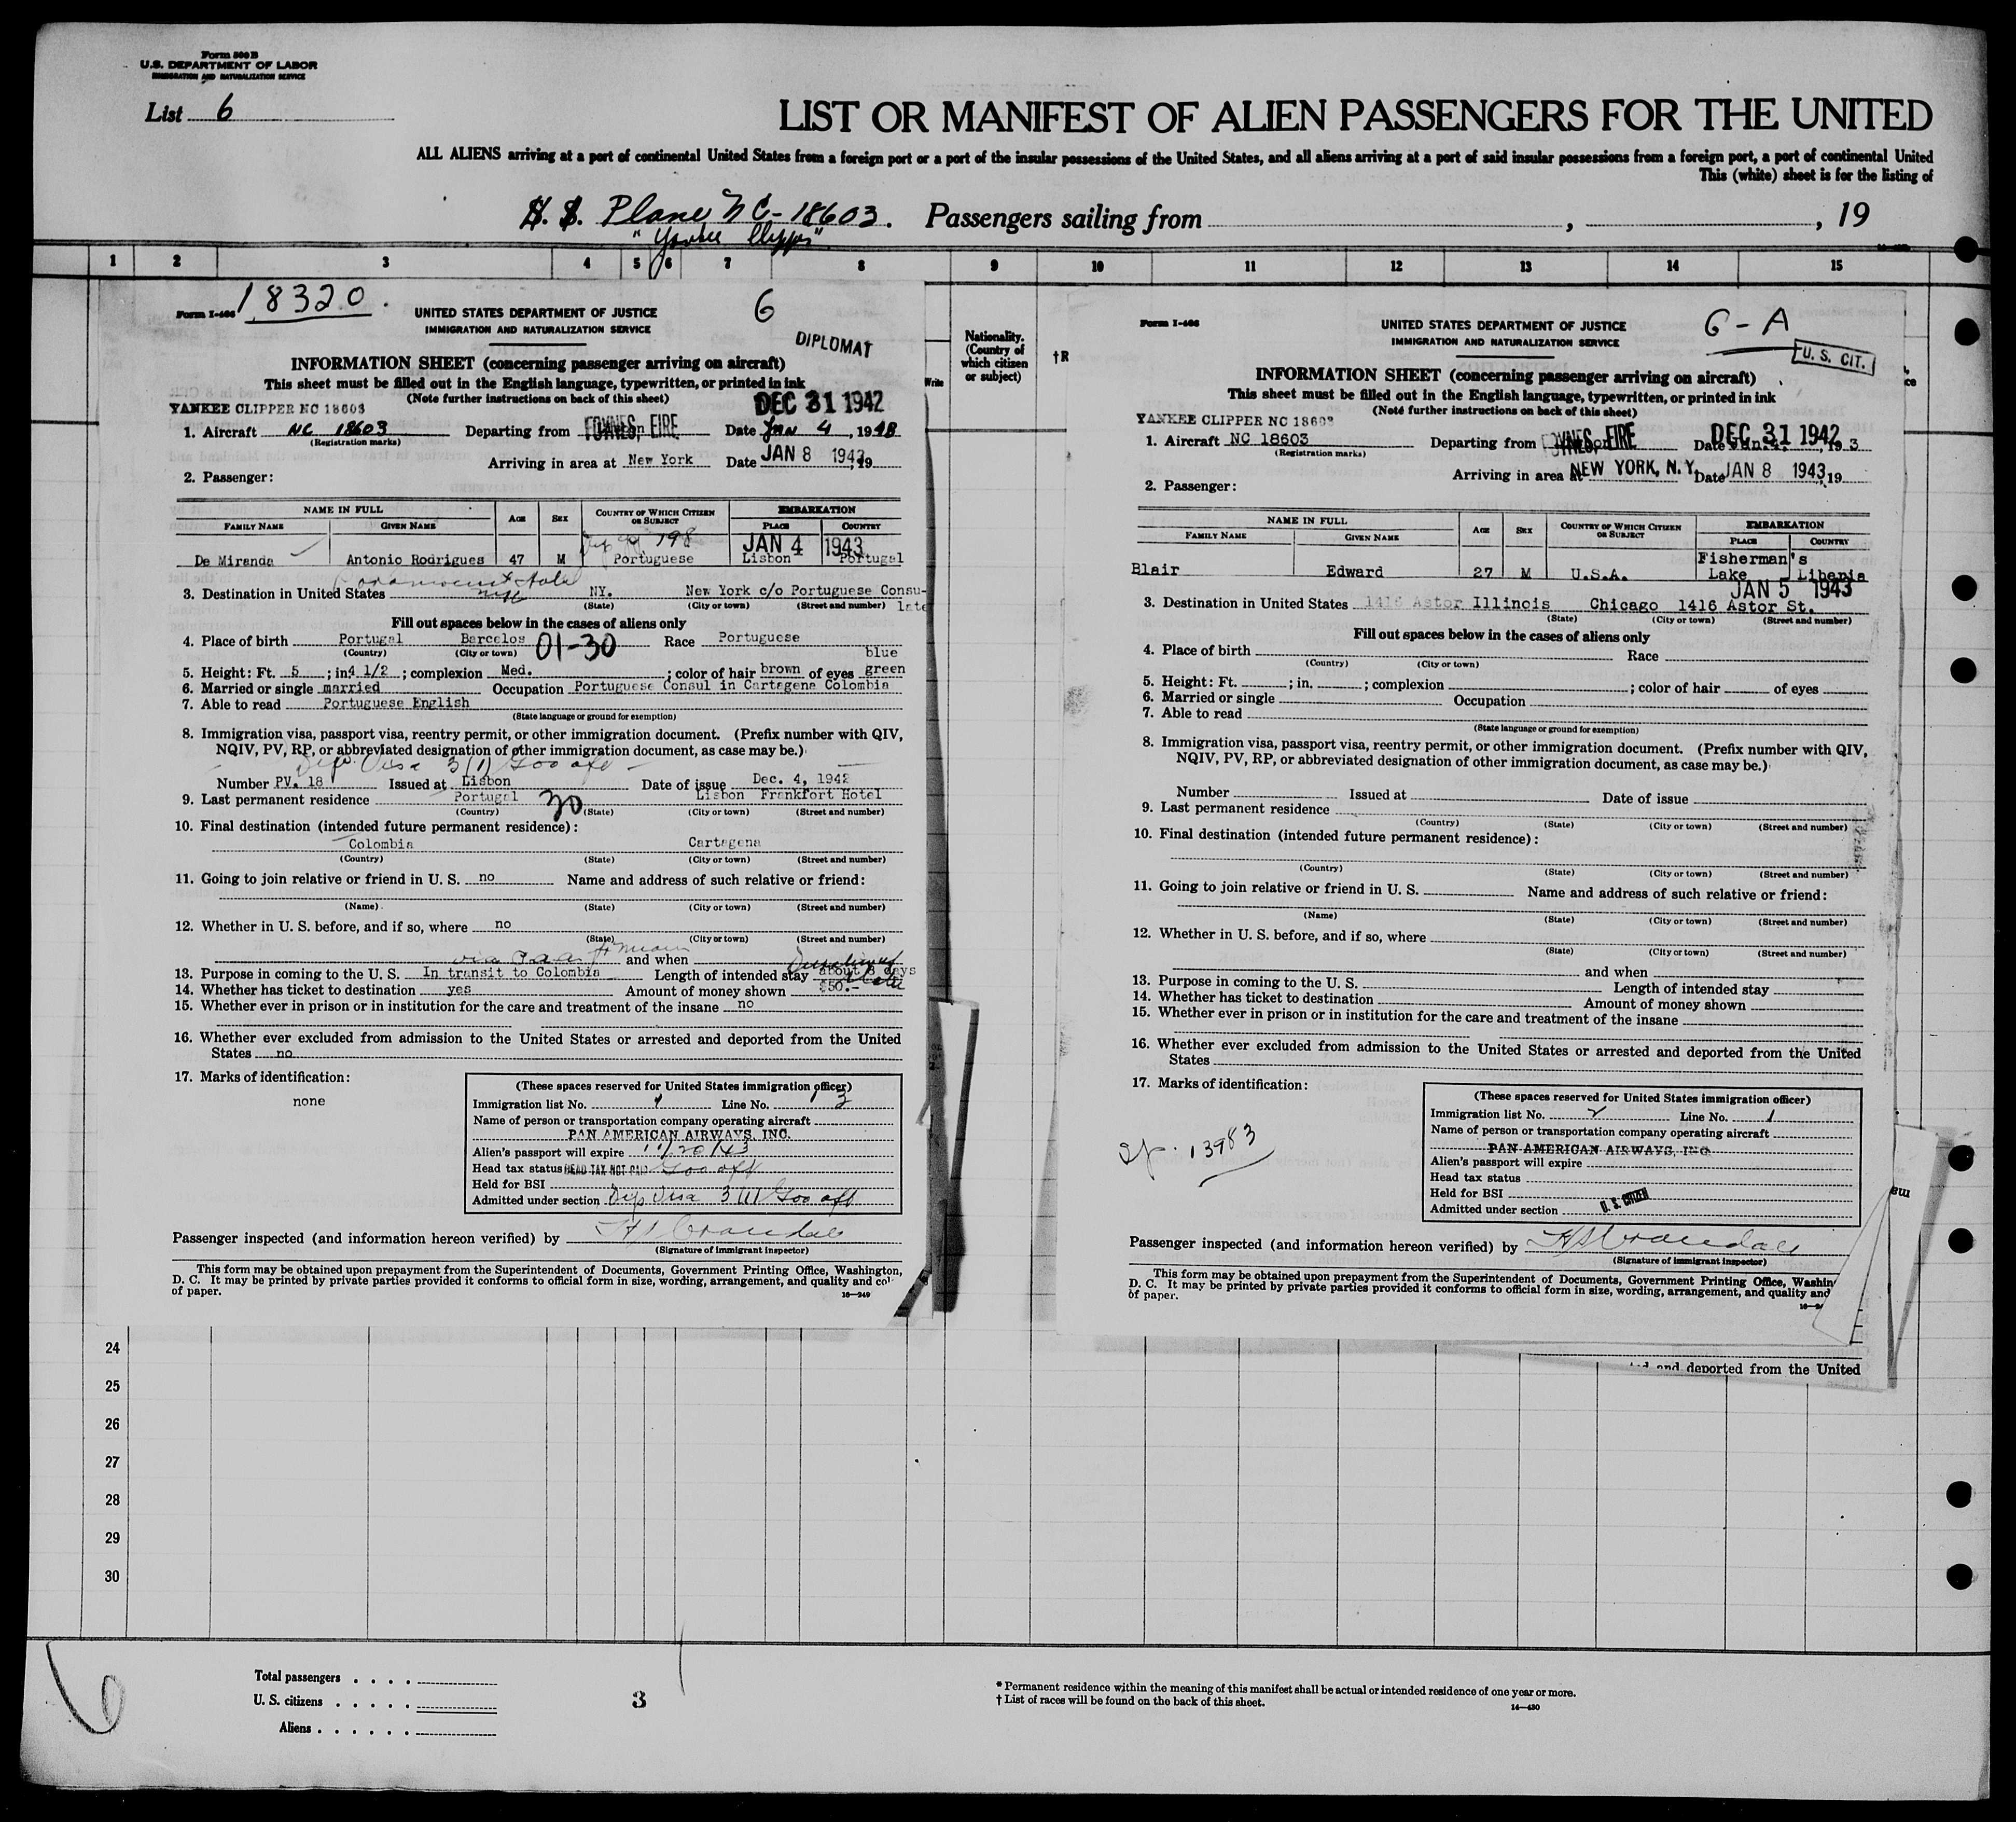 Form 500 B
U.S. DEPARTMENT OF LABOR
IMMIGRATION AND NATURALIZATION SERVICE
List 6
LIST OR MANIFEST OF ALIEN PASSENGERS FOR THE UNITED
ALL ALIENS arriving at a port of continental United States from a foreign port or a port of the insular possessions of the United States, and all aliens arriving at a port of said insular possessions from a foreign port, a port of continental United
This (white) sheet is for the listing of
S. S. Plane NC-18603. Passengers sailing from , , 19
"Yankee Clipper"
1 2 3 4 5 6 7 8 9 10 11 12 13 14 15
18320.
6
Form I-466
UNITED STATES DEPARTMENT OF JUSTICE
IMMIGRATION AND NATURALIZATION SERVICE
DIPLOMAT
INFORMATION SHEET (concerning passenger arriving on aircraft)
This sheet must be filled out in the English language, typewritten, or printed in ink
(Note further instructions on back of this sheet)
DEC 31 1942
YANKEE CLIPPER NC 18603
1. Aircraft NC 18603 Departing from FOYNES, EIRE Date Jan 4, 19
(Registration marks)
Arriving in area at New York Date JAN 8 1943, 19
2. Passenger:
NAME IN FULL AGE SEX COUNTRY OF WHICH CITIZEN OR SUBJECT EMBARKATION
FAMILY NAME GIVEN NAME PLACE COUNTRY
198
JAN 4 1943
De Miranda Antonio Rodrigues 47 M Portuguese Lisbon Portugal
3. Destination in United States NY. New York c/o Portuguese Consu-
late
(State) (City or town) (Street and number)
Fill out spaces below in the cases of aliens only
4. Place of birth Portugal Barcelos 01-30 Race Portuguese
(Country) (City or town)
blue
5. Height: Ft. 5; in. 4 1/2; complexion Med.; color of hair brown of eyes green
6. Married or single married Occupation Portuguese Consul in Cartagena Colombia
7. Able to read Portuguese English
(State language or ground for exemption)
8. Immigration visa, passport visa, reentry permit, or other immigration document. (Prefix number with QIV,
NQIV, PV, RP, or abbreviated designation of other immigration document, as case may be.)
Dip. Visa 3(1) Goo off
Number PV. 18 Issued at Lisbon Date of issue Dec. 4, 1942
9. Last permanent residence Portugal 30 Lisbon Frankfort Hotel
(Country) (State) (City or town) (Street and number)
10. Final destination (intended future permanent residence):
Colombia Cartagena
(Country) (State) (City or town) (Street and number)
11. Going to join relative or friend in U. S. no Name and address of such relative or friend:
(Name) (State) (City or town) (Street and number)
12. Whether in U. S. before, and if so, where no
(State) (City or town) (Street and number)
via PAA Miami and when
13. Purpose in coming to the U. S. In transit to Colombia Length of intended stay about 8 days
14. Whether has ticket to destination yes Amount of money shown $50.-
15. Whether ever in prison or in institution for the care and treatment of the insane no
16. Whether ever excluded from admission to the United States or arrested and deported from the United
States no
17. Marks of identification:
none
(These spaces reserved for United States immigration officer)
Immigration list No. 1 Line No. 3
Name of person or transportation company operating aircraft
PAN AMERICAN AIRWAYS, INC.
Alien's passport will expire 11/20/43
Head tax status HEAD TAX NOT PAID Goo off
Held for BSI
Admitted under section Dip Visa 3(1) Goo off
Passenger inspected (and information hereon verified) by H S Crandall
(Signature of immigrant inspector)
This form may be obtained upon prepayment from the Superintendent of Documents, Government Printing Office, Washington,
D. C. It may be printed by private parties provided it conforms to official form in size, wording, arrangement, and quality and col
of paper.
16—249
Write
Nationality.
(Country of
which citizen
or subject)
†R
Form I-466
UNITED STATES DEPARTMENT OF JUSTICE
IMMIGRATION AND NATURALIZATION SERVICE
6-A
U. S. CIT.
INFORMATION SHEET (concerning passenger arriving on aircraft)
This sheet must be filled out in the English language, typewritten, or printed in ink
(Note further instructions on back of this sheet)
YANKEE CLIPPER NC 18603
DEC 31 1942
1. Aircraft NC 18603 Departing from FOYNES, EIRE Date Jan 4, 19 3
(Registration marks)
Arriving in area at NEW YORK, N. Y. Date JAN 8 1943, 19
2. Passenger:
NAME IN FULL AGE SEX COUNTRY OF WHICH CITIZEN OR SUBJECT EMBARKATION
FAMILY NAME GIVEN NAME PLACE COUNTRY
Fisherman's
Blair Edward 27 M U.S.A. Lake Liberia
JAN 5 1943
3. Destination in United States 1416 Astor Illinois Chicago 1416 Astor St.
(State) (City or town) (Street and number)
Fill out spaces below in the cases of aliens only
4. Place of birth Race
(Country) (City or town)
5. Height: Ft. ; in. ; complexion ; color of hair of eyes
6. Married or single Occupation
7. Able to read
(State language or ground for exemption)
8. Immigration visa, passport visa, reentry permit, or other immigration document. (Prefix number with QIV,
NQIV, PV, RP, or abbreviated designation of other immigration document, as case may be.)
Number Issued at Date of issue
9. Last permanent residence
(Country) (State) (City or town) (Street and number)
10. Final destination (intended future permanent residence):
(Country) (State) (City or town) (Street and number)
11. Going to join relative or friend in U. S. Name and address of such relative or friend:
(Name) (State) (City or town) (Street and number)
12. Whether in U. S. before, and if so, where
(State) (City or town) (Street and number)
and when
13. Purpose in coming to the U. S. Length of intended stay
14. Whether has ticket to destination Amount of money shown
15. Whether ever in prison or in institution for the care and treatment of the insane
16. Whether ever excluded from admission to the United States or arrested and deported from the United
States
17. Marks of identification:
13983
(These spaces reserved for United States immigration officer)
Immigration list No. 2 Line No. 1
Name of person or transportation company operating aircraft
PAN AMERICAN AIRWAYS, INC.
Alien's passport will expire
Head tax status
Held for BSI
Admitted under section U. S. CITIZEN
Passenger inspected (and information hereon verified) by H S Crandall
(Signature of immigrant inspector)
This form may be obtained upon prepayment from the Superintendent of Documents, Government Printing Office, Washin
D. C. It may be printed by private parties provided it conforms to official form in size, wording, arrangement, and quality and
of paper.
and deported from the United
24
25
26
27
28
29
30
6
Total passengers
U. S. citizens
Aliens
3
* Permanent residence within the meaning of this manifest shall be actual or intended residence of one year or more.
† List of races will be found on the back of this sheet.
14—430